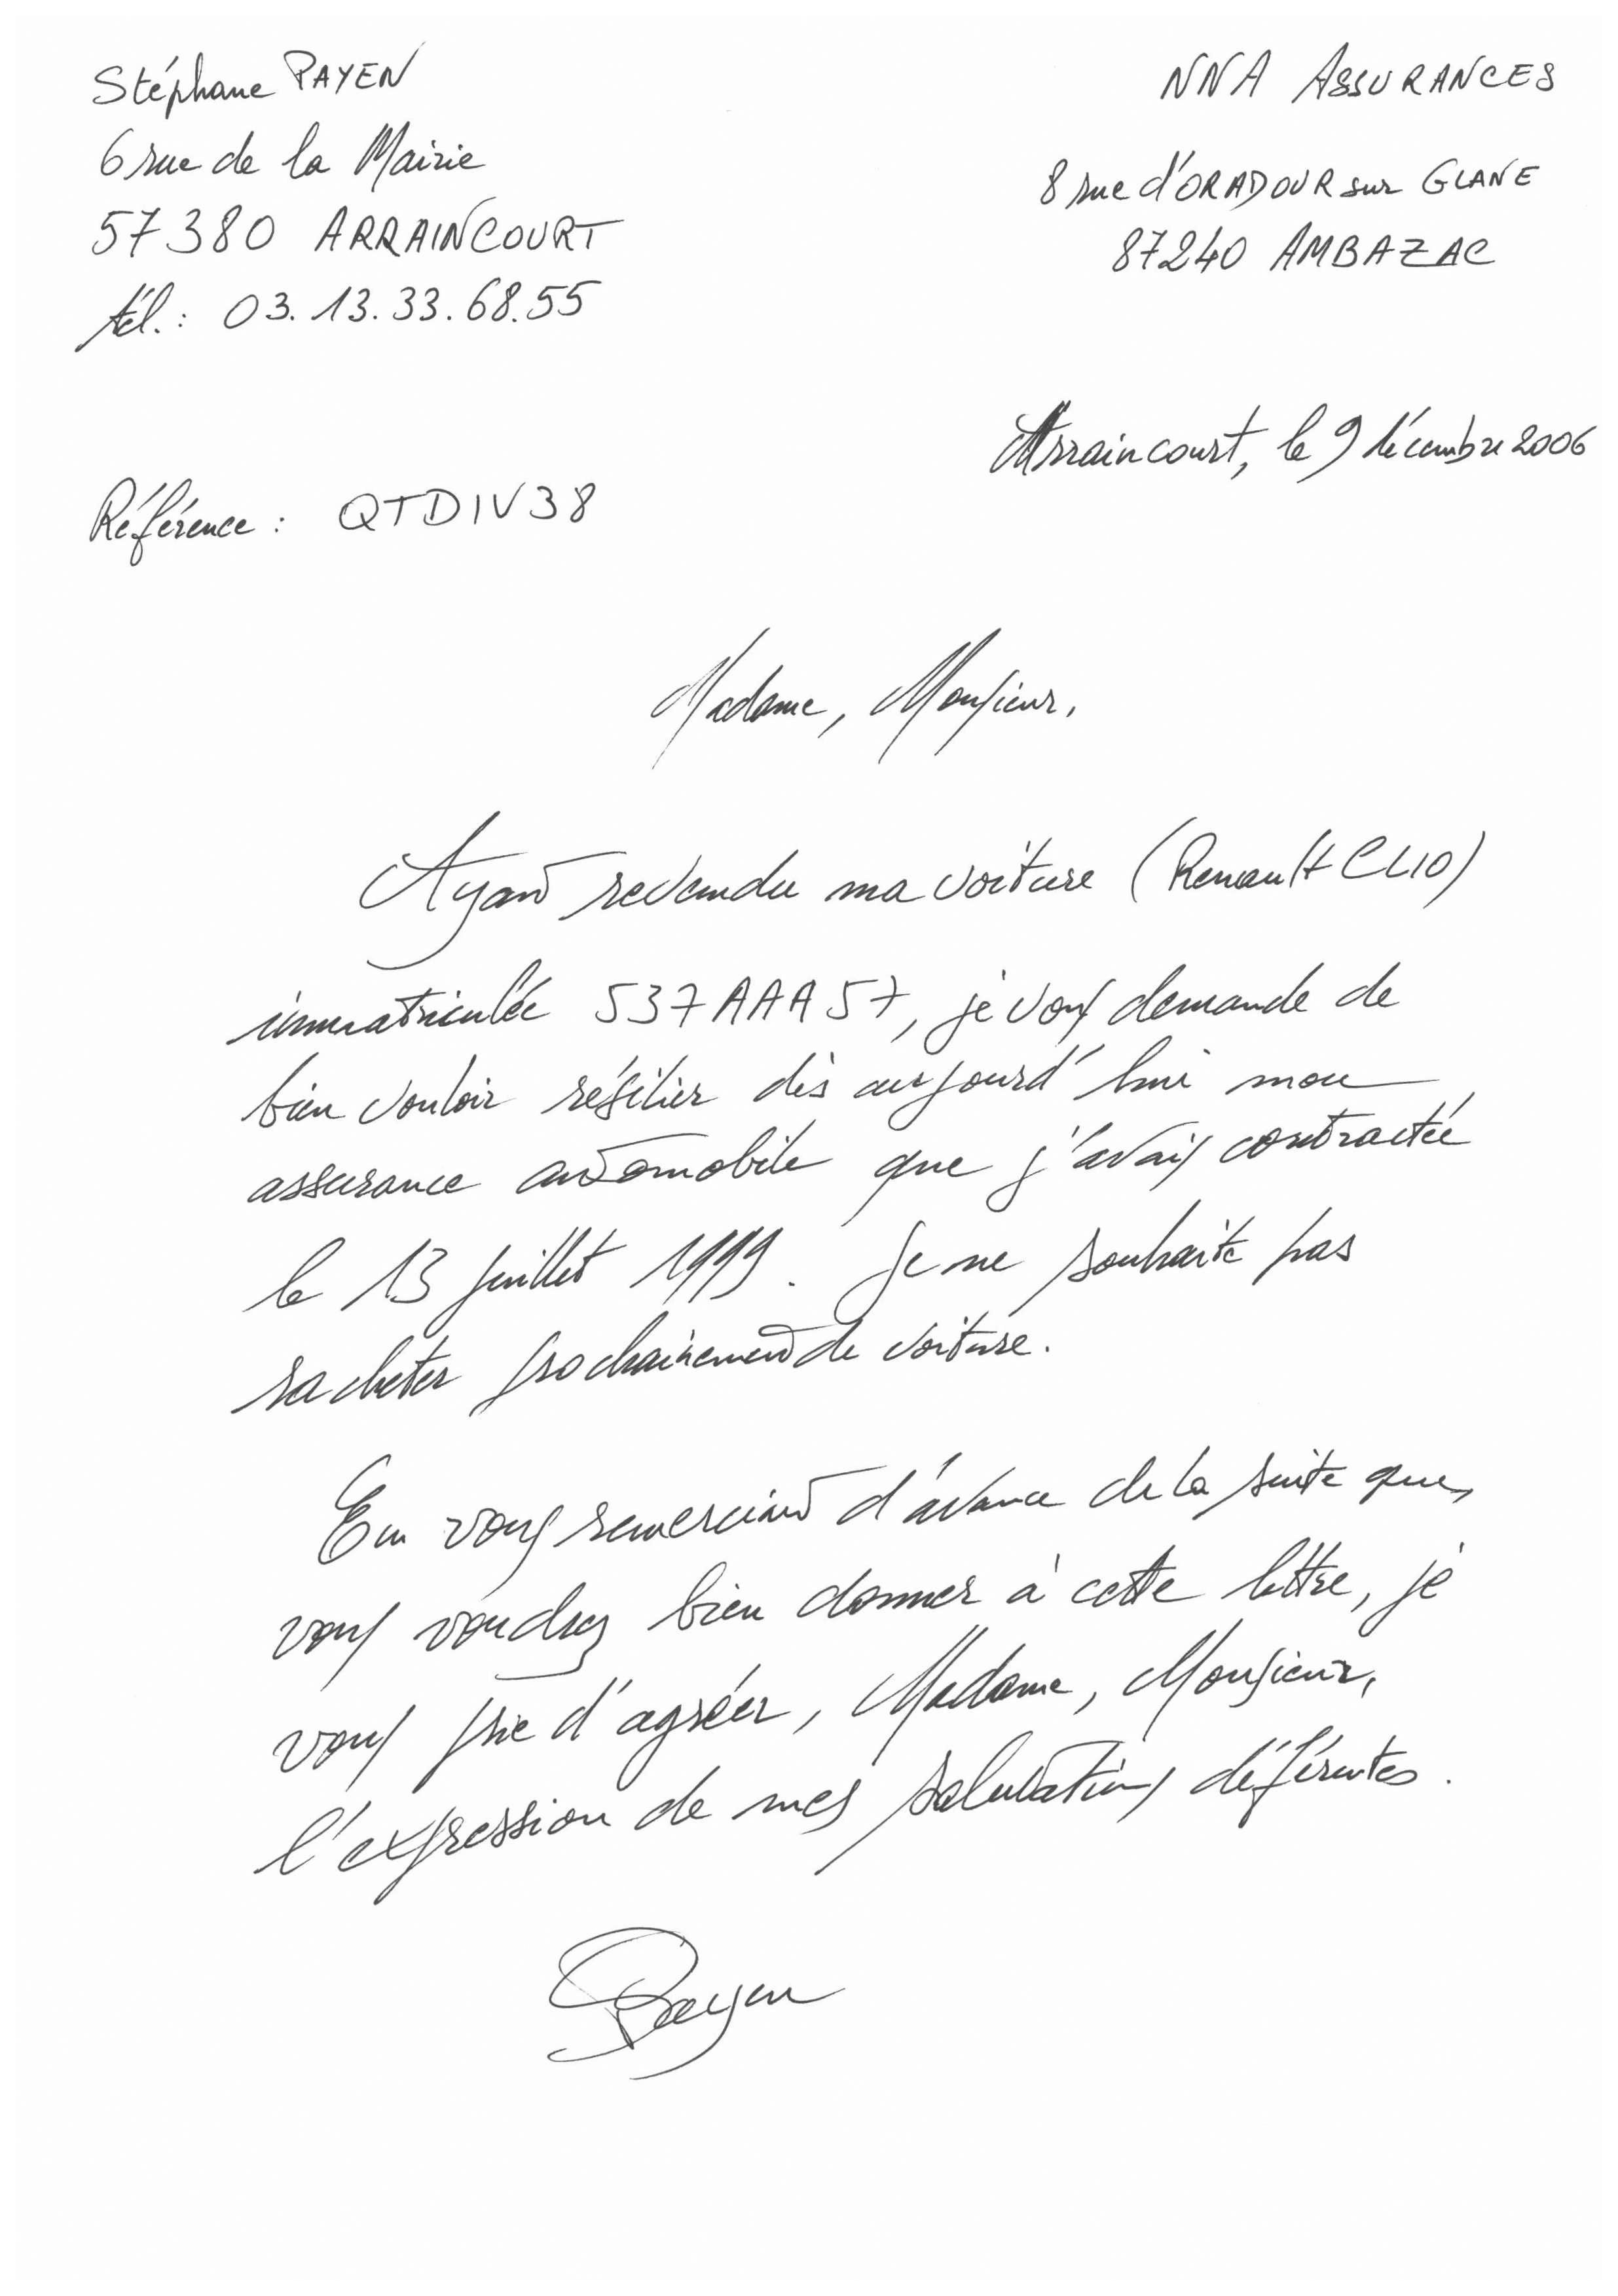 Stéphane PAYEN
6 rue de la Mairie
57380 ARRAINCOURT
tél.: 03.13.33.68.55
NNA ASSURANCES
8 rue d'ORADOUR sur GLANE
87240 AMBAZAC
Arraincourt, le 9 décembre 2006
Référence : QTDIV38
Madame, Monsieur,
Ayant revendu ma voiture (Renault CLIO)
immatriculée 537AAA57, je vous demande de
bien vouloir résilier dès aujourd'hui mon
assurance automobile que j'avais contractée
le 13 juillet 1999. Je ne souhaite pas
racheter prochainement de voiture.
En vous remerciant d'avance de la suite que
vous voudrez bien donner à cette lettre, je
vous prie d'agréer, Madame, Monsieur,
l'expression de mes salutations déférentes.
SPayen